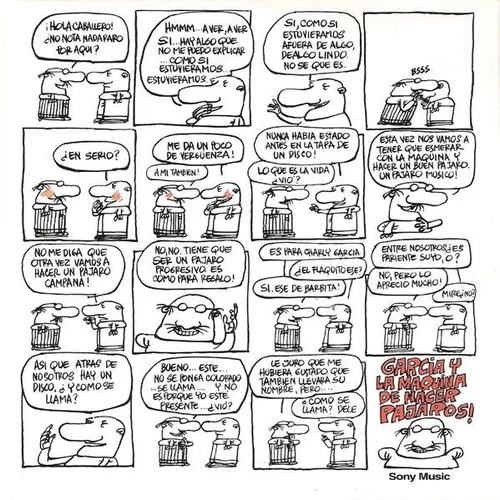 ¡HOLA CABALLERO!
¿NO NOTA NADA RARO
POR AQUI?
HMMM...A VER, A VER
SI...HAY ALGO QUE
NO ME PUEDO EXPLICAR
...COMO SI
ESTUVIERAMOS..
ESTUVIERAMOS...
SI, COMO SI
ESTUVIERAMOS
AFUERA DE ALGO,
DE ALGO LINDO.
NO SE QUE ES.
BSSS
¿EN SERIO?
ME DA UN POCO
DE VERGÜENZA!
A MI TAMBIEN!
NUNCA HABIA ESTADO
ANTES EN LA TAPA DE
UN DISCO!
LO QUE ES LA VIDA
¿VIO?
ESTA VEZ NOS VAMOS A
TENER QUE ESMERAR
CON LA MAQUINA Y
HACER UN BUEN PAJARO.
UN PAJARO MUSICO!
NO ME DIGA QUE
OTRA VEZ VAMOS A
HACER UN PAJARO
CAMPANA!
NO, NO. TIENE QUE
SER UN PAJARO
PROGRESIVO. ES
COMO PARA REGALO!
ES PARA CHARLY GARCIA
¿EL FLAQUITO ESE?
SI. ESE DE BARBITA!
ENTRE NOSOTROS ¿ES
PARIENTE SUYO, O?
NO, PERO LO
APRECIO MUCHO!
MIRE ¡NO!
ASI QUE ATRAS DE
NOSOTROS HAY UN
DISCO. ¿Y COMO SE
LLAMA?
BUENO...ESTE...
NO SE PONGA COLORADO
..SE LLAMA.... Y NO
ES PORQUE YO ESTE
PRESENTE...¿VIO?
LE JURO QUE ME
HUBIERA GUSTADO QUE
TAMBIEN LLEVARA SU
NOMBRE, PERO....
¿COMO SE
LLAMA? DELE
GARCIA Y
LA MAQUINA
DE HACER
PAJAROS!
Sony Music